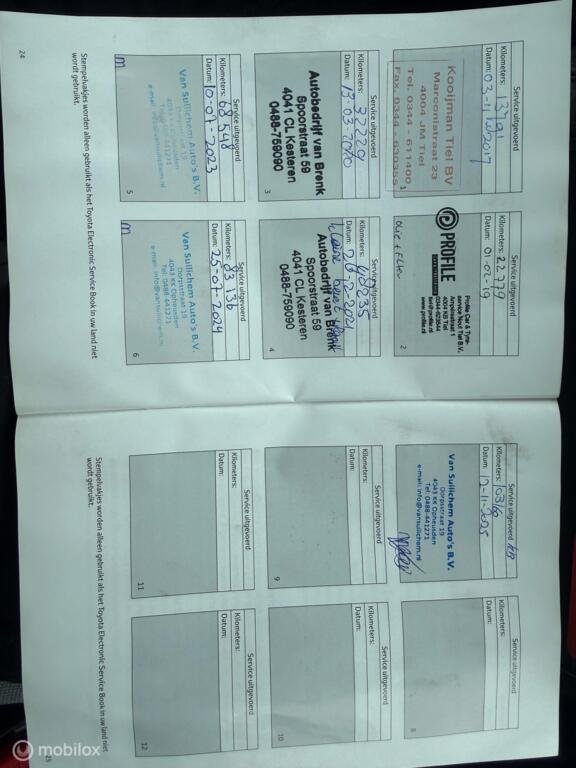 Service uitgevoerd
Kilometers: 13791
Datum: 03-11-2017
Kooijman Tiel BV
Marconistraat 23
4004 JM Tiel
Tel. 0344 - 611400
Fax. 0344 - 630355
1
Service uitgevoerd
Kilometers: 22.779
Datum: 01-02-19
PROFILE
Profile Car & Tyre-
service Tiel B.V.
4004
www.profile.nl
olie + filter
2
Service uitgevoerd
Kilometers: 32220
Datum: 13-03-2020
Autobedrijf van Brenk
Spoorstraat 59
4041 CL Kesteren
0488-759090
3
Service uitgevoerd
Kilometers: 48255
Datum:
kleine beurt
Autobedrijf van Brenk
Spoorstraat 59
4041 CL Kesteren
0488-759090
4
Service uitgevoerd
Kilometers: 68548
Datum: 10-07-2023
Van Sullichem Auto's B.V.
Dorpsstraat 19
4043 KK Opheusden
Tel: 0488-441271
e-mail: info@vansullichem.nl
m
5
Service uitgevoerd
Kilometers: 83136
Datum: 25-07-2024
Van Sullichem Auto's B.V.
Dorpsstraat 19
4043 KK Opheusden
Tel: 0488-441271
e-mail: info@vansullichem.nl
m
6
Stempelvakjes worden alleen gebruikt als het Toyota Electronic Service Book in uw land niet
wordt gebruikt.
24
Service uitgevoerd
Kilometers: 103160
Datum: 12-11-2025
Van Sullichem Auto's B.V.
Dorpsstraat 19
4043 KK Opheusden
Tel: 0488-441271
e-mail: info@vansullichem.nl
Service uitgevoerd
Kilometers:
Datum:
8
Service uitgevoerd
Kilometers:
Datum:
9
Service uitgevoerd
Kilometers:
Datum:
10
Service uitgevoerd
Kilometers:
Datum:
11
Service uitgevoerd
Kilometers:
Datum:
12
Stempelvakjes worden alleen gebruikt als het Toyota Electronic Service Book in uw land niet
wordt gebruikt.
25
mobilox